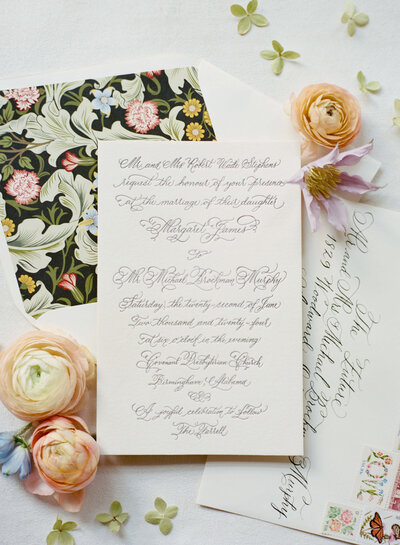 Mr. and Mrs. Robert Wade Stephens
request the honour of your presence
at the marriage of their daughter
Margaret James
to
Mr. Michael Brockman Murphy
Saturday, the twenty-second of June
Two thousand and twenty-four
at six o'clock in the evening
Covenant Presbyterian Church
Birmingham, Alabama
A joyful celebration to follow
The Farrell
The Future
Mr. and Mrs. Michael Brockman Murphy
1829 Woodward